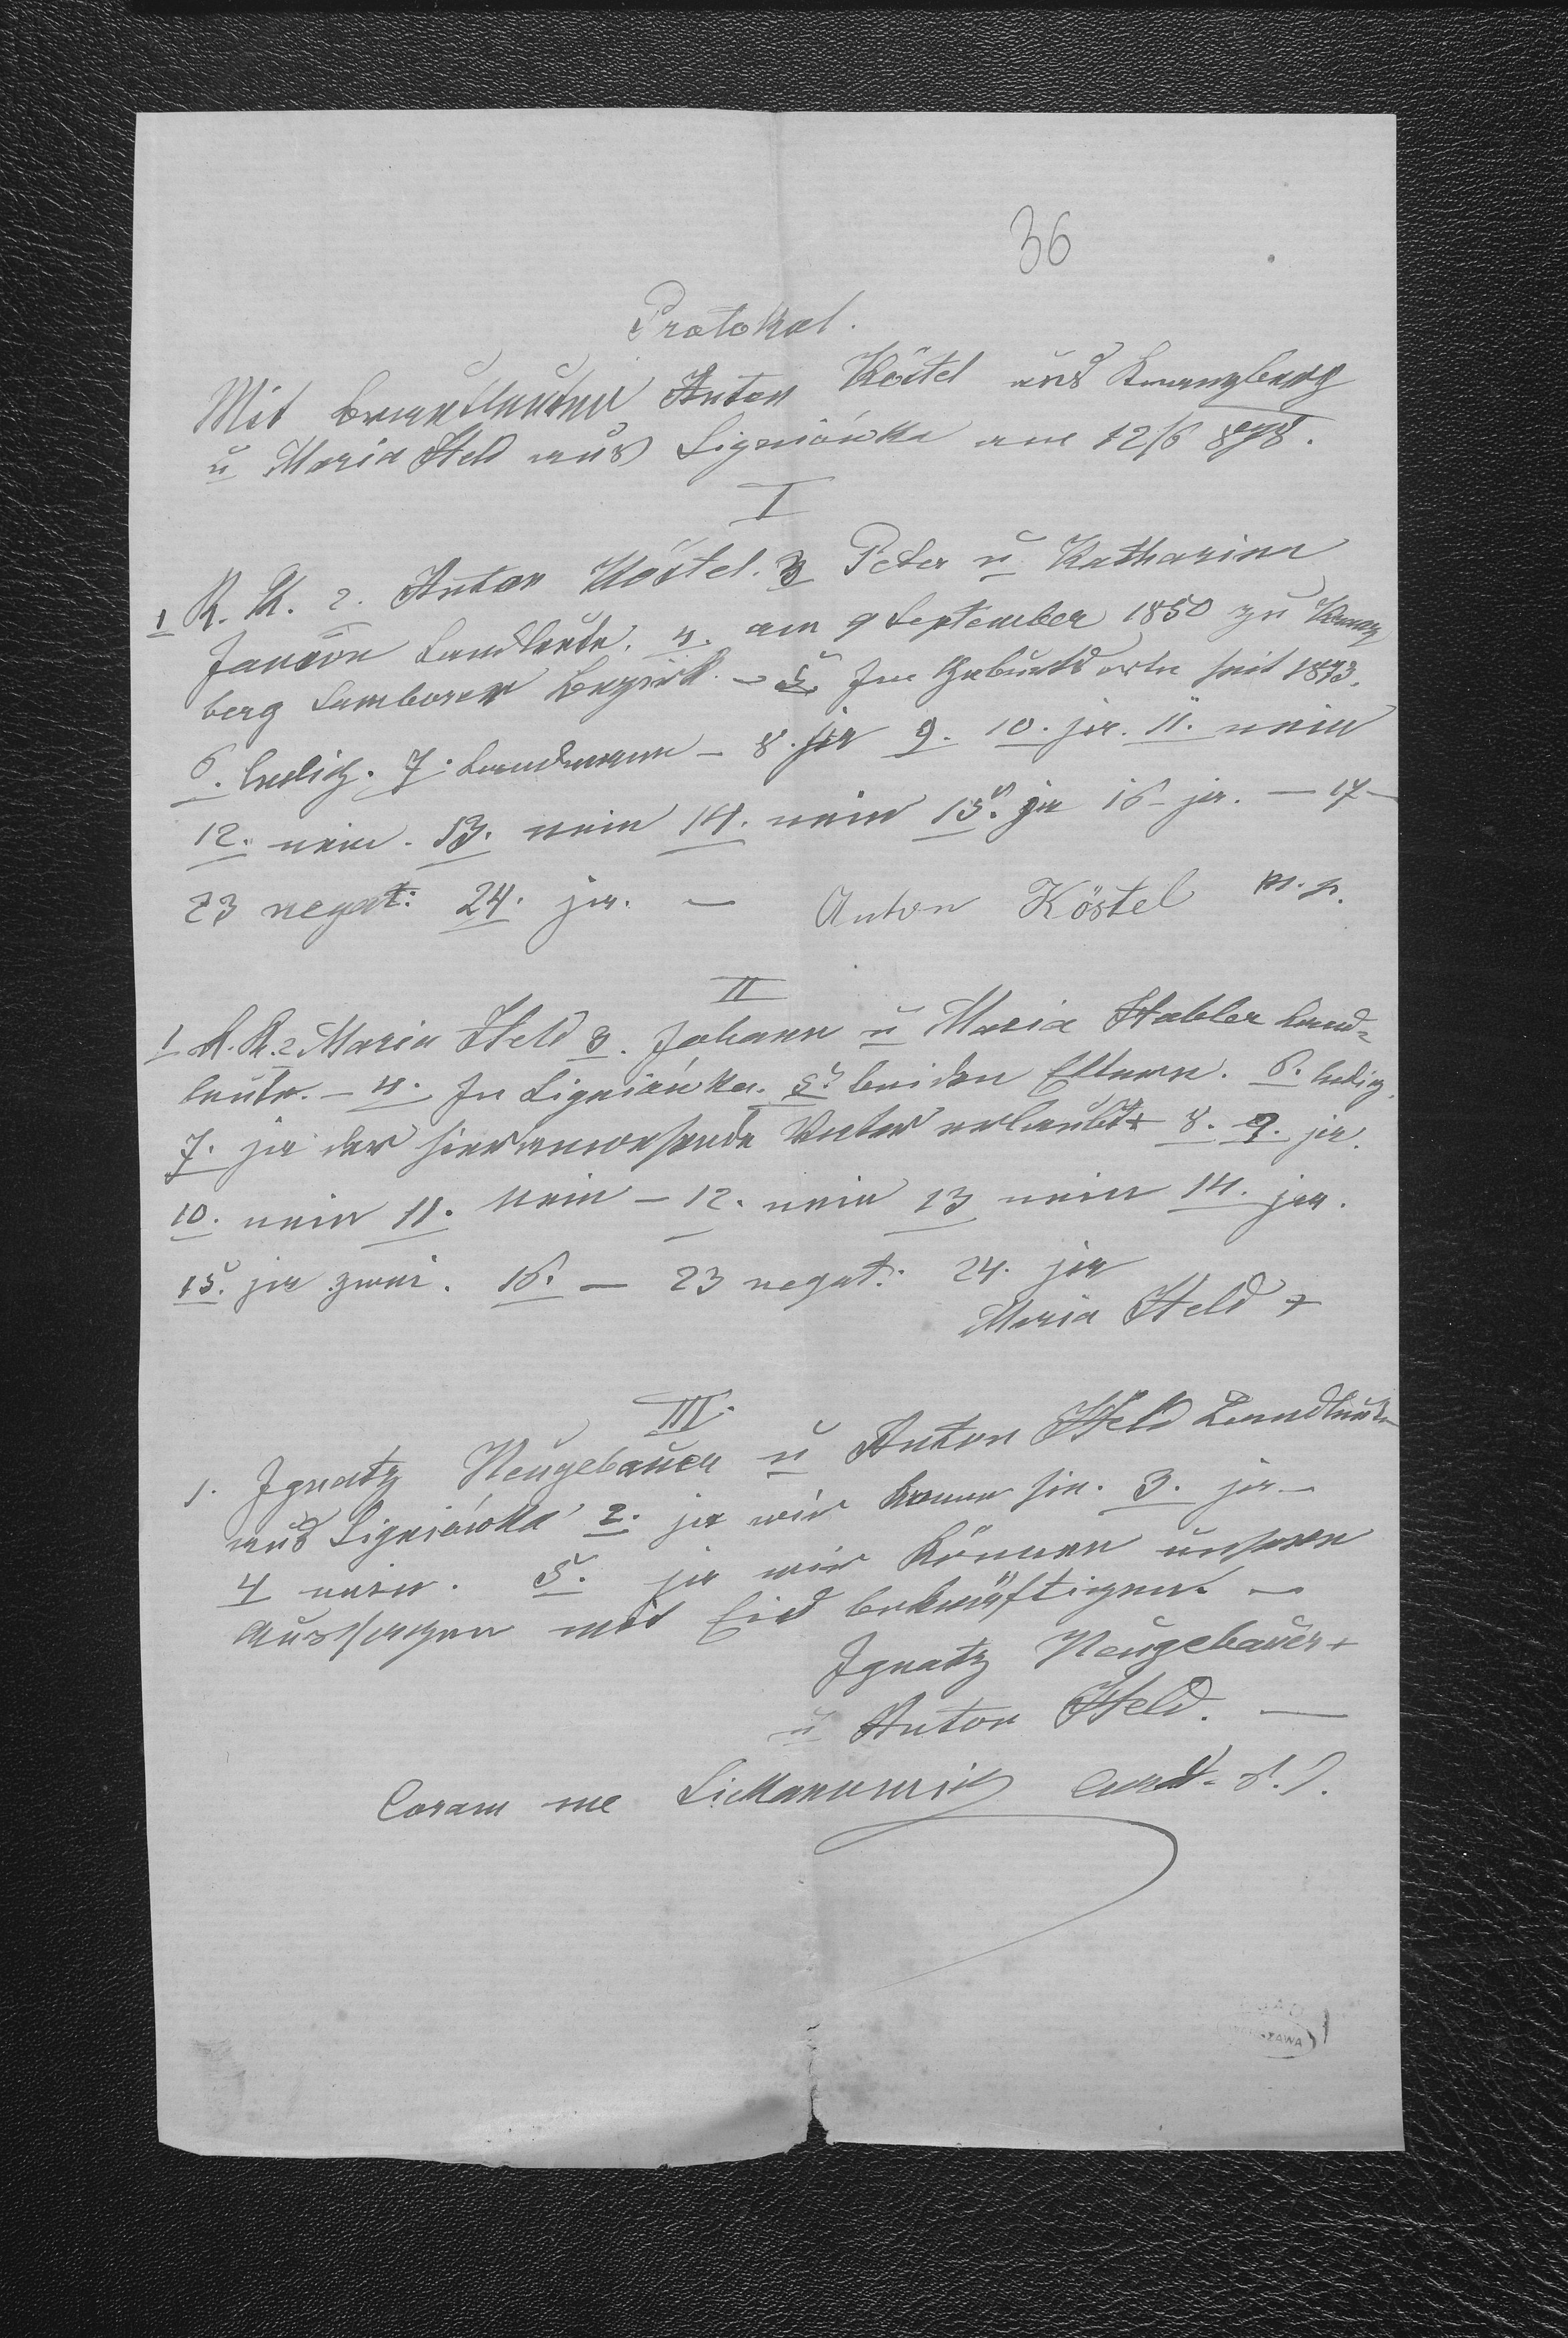 36
Protokol.
Mit Brautleuten Anton Köstel aus Kranzberg
u Maria Held aus Ligniówka am 12/6 878.
I
1 R. K. 2. Anton Köstel. 3 Peter u Katharina
Landleute. 4. am 9 September 1850 zu Kranz
berg Samborer Bezirk. – 5. Im Geburtsorte seit 1873.
6. ledig. 7. Landmann – 8. ja 9. 10. ja. 11. nein
12. nein. 13. nein 14. nein 15. ja 16 – ja. – 17 –
23 negat: 24. ja. – Anton Köstel m. p.
II
1 R. K. 2 Maria Held 3. Johann u Maria Habler Land=
leute. – 4. In Ligniówka. 5. bei den Eltern. 6. ledig.
7. ja der hier anwesende Vater erlaubt 8. 9. ja.
10. nein 11. nein – 12. nein 13 nein 14. ja.
15. ja zwei. 16. – 23 negat: 24. ja
Maria Held +
III.
1. Ignatz Neugebauer u Anton Held Landleute
aus Ligniówka 2. ja wir kennen sie. 3. ja –
4 nein. 5. ja wir können unsere
Aussagen mit Eid bekräftigen. –
Ignatz Neugebauer +
u Anton Held. –
Coram me
WARSZAWA